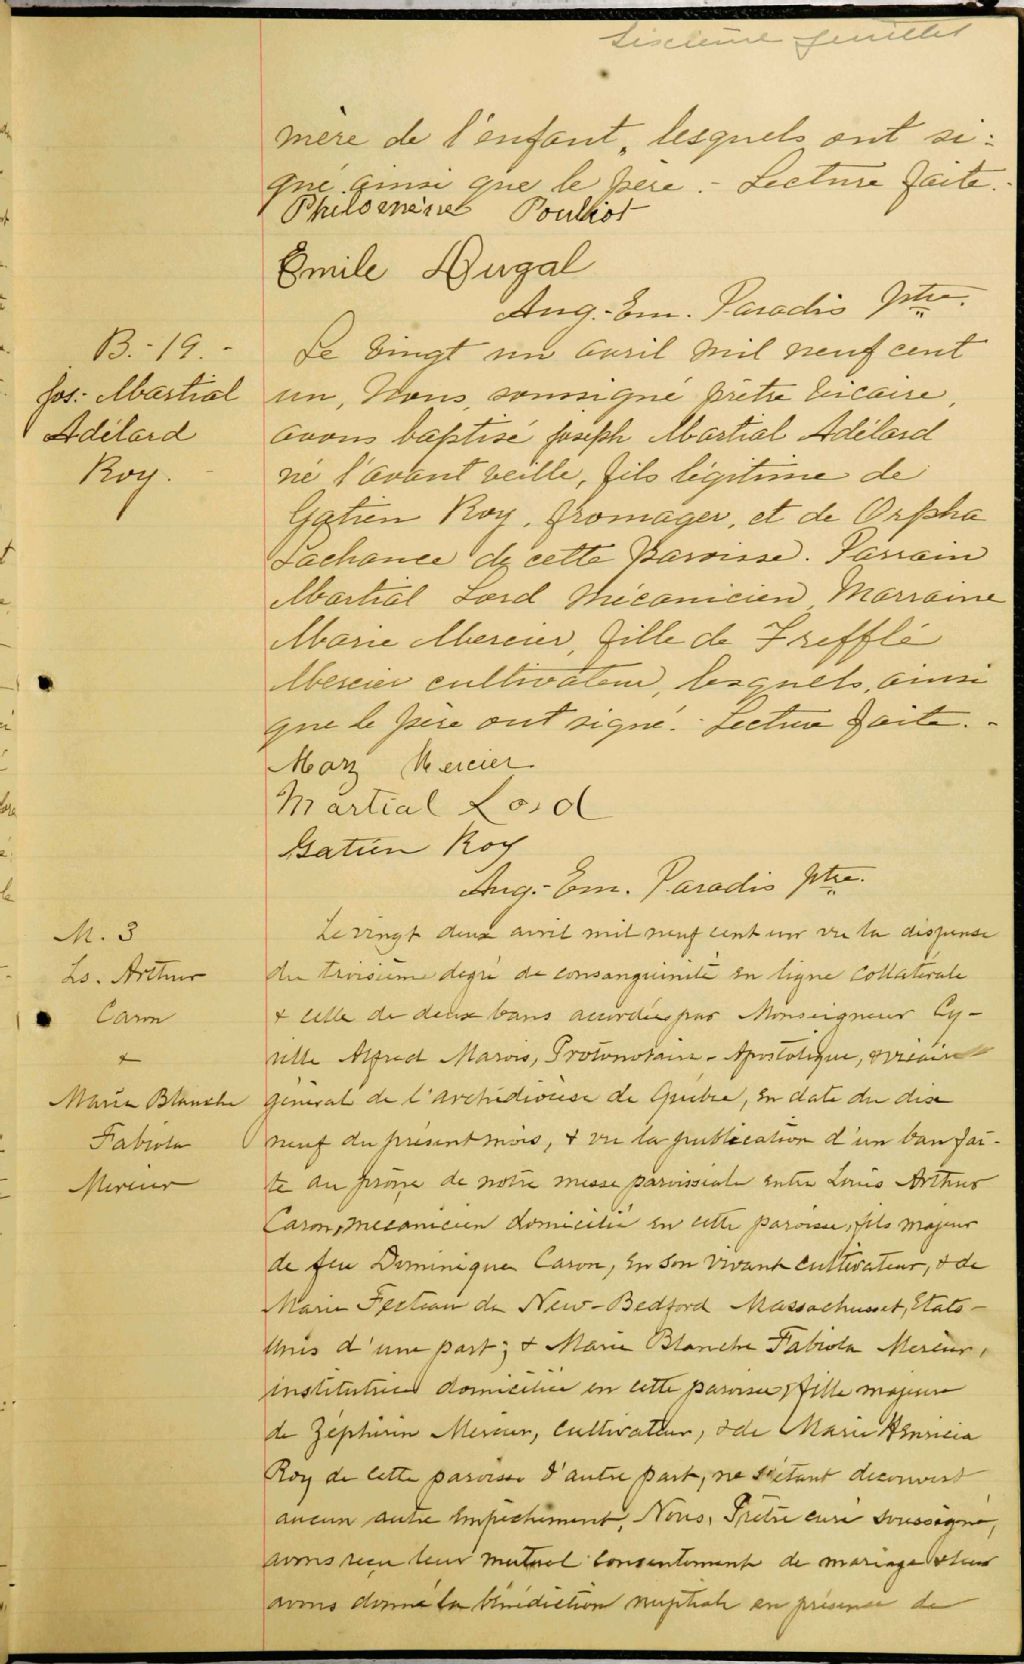 Sixième feuillet
mère de l'enfant, lesquels ont si-
gné ainsi que le père. - Lecture faite. -
Philomène Pouliot
Emile Dugal
Aug.-Em. Paradis Ptre.
B. - 19. -
Jos. Martial
Adélard
Roy.
Le vingt un avril mil neuf cent
un, Nous, soussigné prêtre vicaire,
avons baptisé Joseph Martial Adélard
né l'avant veille, fils légitime de
Gatien Roy, fromager, et de Orpha
Lachance de cette paroisse. Parrain
Martial Lord mécanicien, Marraine
Marie Mercier, fille de Trefflé
Mercier cultivateur, lesquels, ainsi
que le père ont signé. - Lecture faite. -
Mary Mercier
Martial Lord
Gatien Roy
Aug.-Em. Paradis ptre.
M. 3
Ls. Arthur
Caron
+
Marie Blanche
Fabiola
Mercier
Le vingt deux avril mil neuf cent un vu la dispense
du troisième degré de consanguinité en ligne collatérale
+ celle de deux bans accordées par Monseigneur Cy-
rille Alfred Marois, Protonotaire-Apostolique, + vicaire
général de l'archidiocèse de Québec, en date du dix
neuf du présent mois, + vu la publication d'un ban fai-
te au prône de notre messe paroissiale entre Louis Arthur
Caron, mecanicien domicilié en cette paroisse, fils majeur
de feu Dominique Caron, en son vivant cultivateur, + de
Marie Fecteau de New-Bedford Massachusset, Etats-
Unis d'une part; + Marie Blanche Fabiola Mercier,
institutrice domiciliée en cette paroisse, fille majeure
de Zéphirin Mercier, cultivateur, + de Marie Henricia
Roy de cette paroisse d'autre part, ne s'étant decouvert
aucun autre empêchement, Nous, Prêtre curé soussigné,
avons reçu leur mutuel consentement de mariage + leur
avons donné la bénédiction nuptiale en présence de